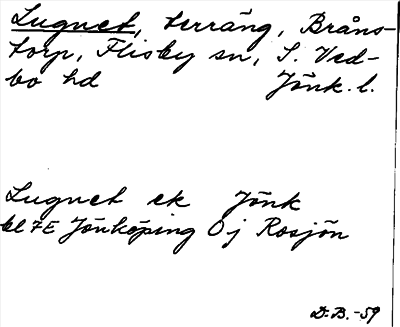 Lugnet, terräng, Bråns-
torp, Flisby sn, S. Ved-
bo hd Jönk. l.
Lugnet ek Jönk
bl 7E Jönköping Öj Rosjön
D.B. -59